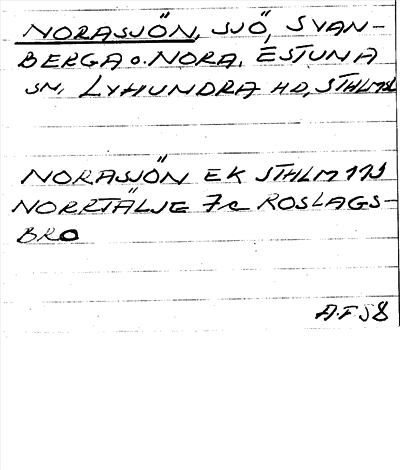 NORASJÖN, SJÖ, SVAN-
BERGA o. NORA. ESTUNA
SN, LYHUNDRA HD, STHLMSL

NORASJÖN EK STHLM 119
NORRTÄLJE 7c ROSLAGS-
BRO
A.F 58